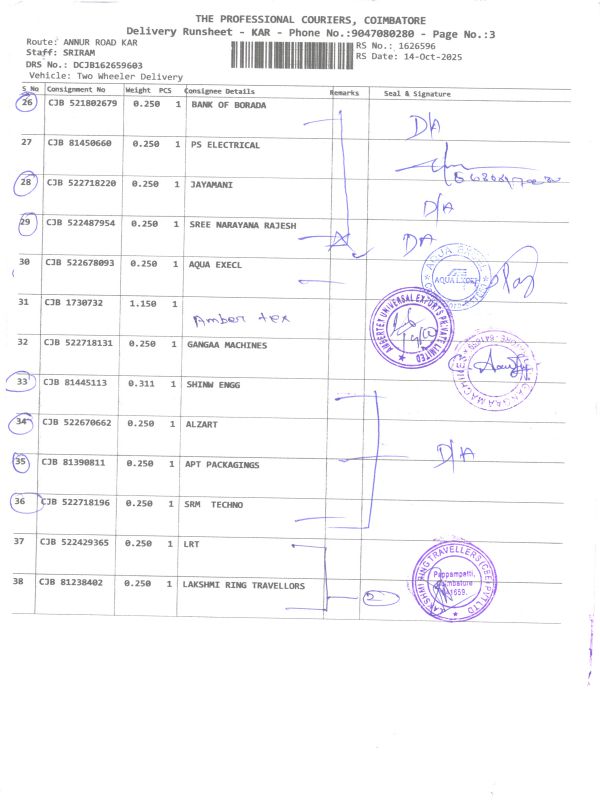 THE PROFESSIONAL COURIERS, COIMBATORE
Delivery Runsheet - KAR - Phone No.:9047080280 - Page No.:3
Route: ANNUR ROAD KAR
RS No.: 1626596
Staff: SRIRAM
RS Date: 14-Oct-2025
DRS No.: DCJB162659603
Vehicle: Two Wheeler Delivery
S_No Consignment No Weight PCS Consignee Details Remarks Seal & Signature
26 CJB 521802679 0.250 1 BANK OF BORADA D/A
27 CJB 81450660 0.250 1 PS ELECTRICAL
28 CJB 522718220 0.250 1 JAYAMANI D/A
29 CJB 522487954 0.250 1 SREE NARAYANA RAJESH D/A
30 CJB 522678093 0.250 1 AQUA EXECL AQUA EXCEL
31 CJB 1730732 1.150 1 Amber tex
AMBERTEX UNIVERSAL EXPORTS PRIVATE LIMITED
32 CJB 522718131 0.250 1 GANGAA MACHINES
33 CJB 81445113 0.311 1 SHINW ENGG
34 CJB 522670662 0.250 1 ALZART D/A
35 CJB 81390811 0.250 1 APT PACKAGINGS
36 CJB 522718196 0.250 1 SRM TECHNO
37 CJB 522429365 0.250 1 LRT
38 CJB 81238402 0.250 1 LAKSHMI RING TRAVELLORS 2
LAKSHMI RING TRAVELLERS (CBE) PVT LTD
Pappampatti,
Coimbatore